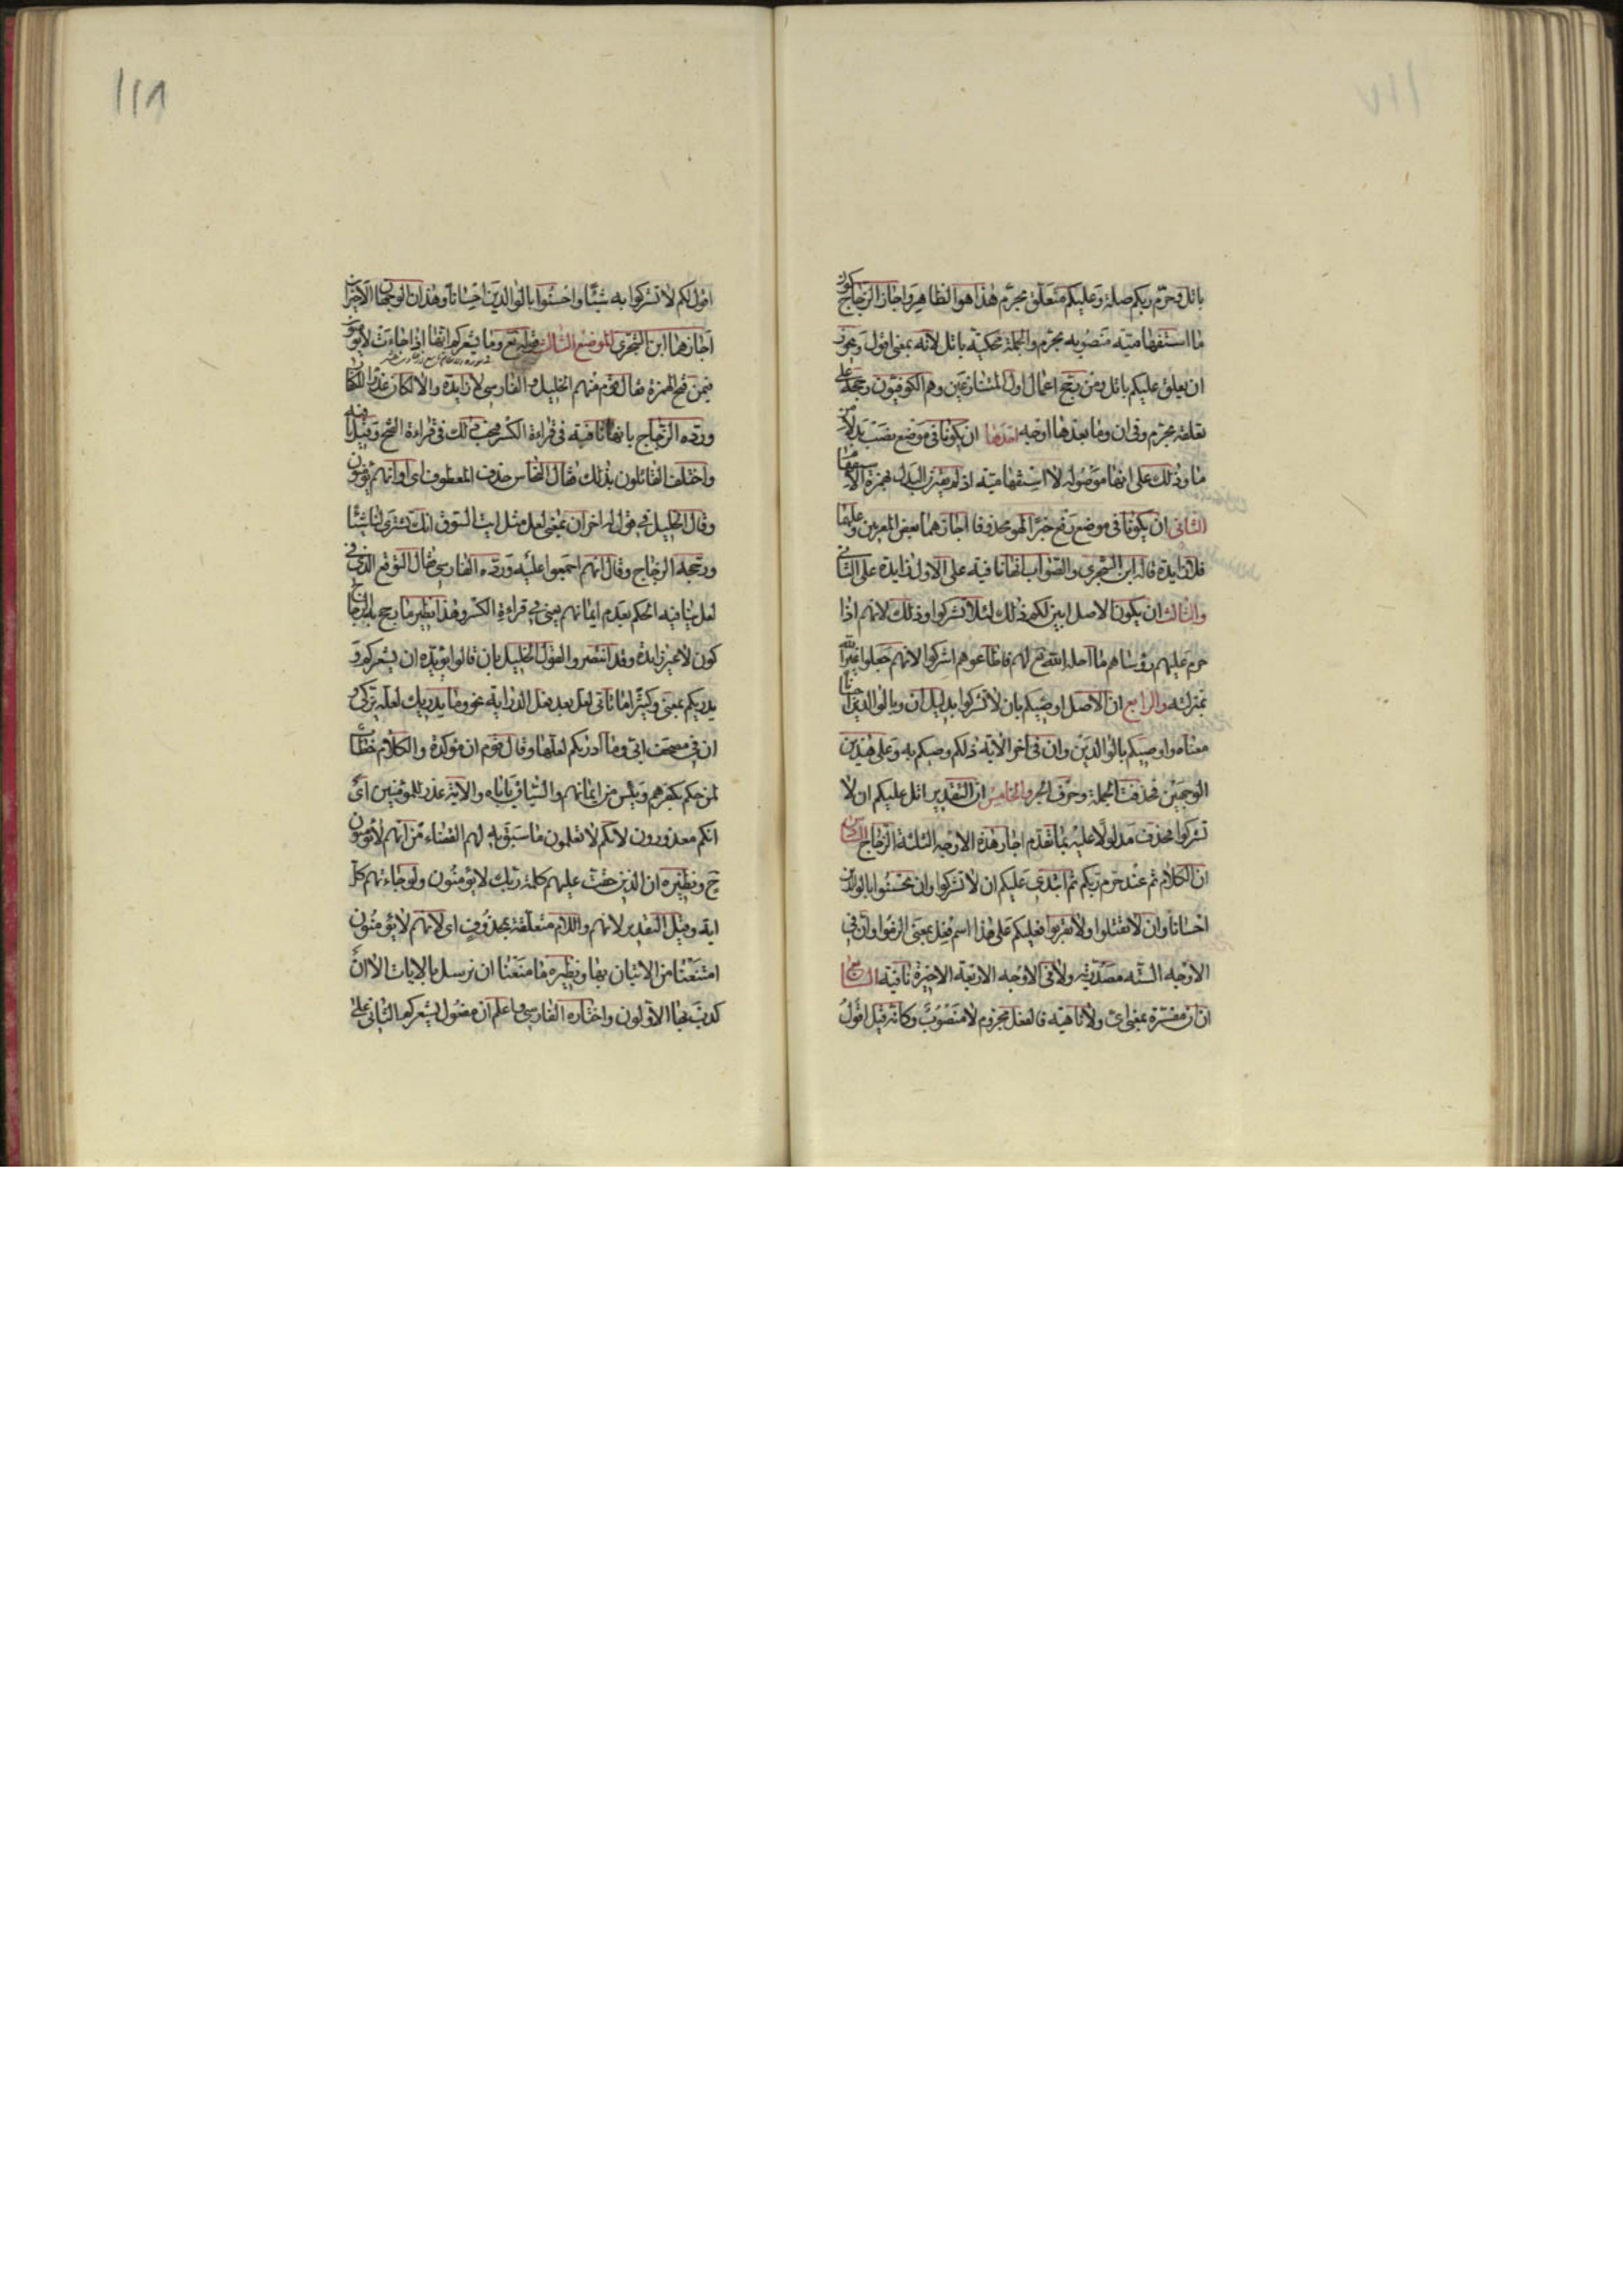 ١١٧
باتل وحرم ربكم صلة وعليكم متعلق بحرم هذا هو الظاهر واجاز الزجاج كون
ما استفهامية منصوبه بحرم والجملة محكية باتل لانه بمعنى اقول ويجوز
ان يعلق عليكم باتل ومن رجح اعمال اول المتنازعين وهم الكوفيون رجحه على
تعلقه بحرم وفى ان وما بعدها اوجه احدها ان يكونا فى موضع نصب بدلا من
ما وذلك على انها موصوله لا استفهامية اذ لم يقترن البدل بهمزة الاستفهام
الثانى ان يكونا فى موضع رفع خبرا لهو محذوفا اجازهما بعض المعربين وعليهما
فلا زايدة قاله ابن الشجرى والصواب انها نافية على الاول زايدة على الثانى
والثالث ان يكون الاصل ابين لكم ذلك لئلا تشركوا وذلك لانهم اذا
حرم عليهم رؤساهم ما احله الله تع لهم فاطاعوهم اشركوا لانهم جعلوا غير الله
بمنزلته والرابع ان الاصل اوصيكم بان لا تشركوا بدليل ان وبالوالدين احسانا
معناه واوصيكم بالوالدين وان فى اخر الاية ذلكم وصيكم به وعلى هذين
الوجهين فحذفت الجملة وحرف الجر والخامس ان التقدير اتل عليكم ان لا
تشركوا فحذف مدلولا عليه بما تقدم اجاز هذه الاوجه الثلثة الزجاج السادس
ان الكلام تم عند حرم ربكم ثم ابتدئ عليكم ان لا تشركوا وان تحسنوا بالوالدين
احسانا وان لا تقتلوا ولا تقربوا فعليكم على هذا اسم فعل بمعنى الزموا وان فى
الاوجه الستة مصدرية ولا فى الاوجه الاربعة الاخيرة نافية السابع
ان ان مفسرة بمعنى اى ولا ناهية فالفعل مجزوم لا منصوب وكانه قيل اقول
١١٨
اقول لكم لا تشركوا به شيئا واحسنوا بالوالدين احسانا وهذان الوجهان الاخيران
اجازهما ابن الشجرى الموضع الثالث قوله تع وما يشعركم انها اذا جاءت لا يؤمنون
فيمن فتح الهمزة فقال قوم منهم الخليل والفارسى لا زايدة والا لكان عذرا للكفار
ورده الزجاج بانها نافية فى قراءة الكسر فيجب ذلك فى قراءة الفتح وقيل نافية
واختلف القائلون بذلك فقال النحاس حذف المعطوف اى او انهم يؤمنون
وقال الخليل فى قول له اخر ان بمعنى لعل مثل ايت السوق انك تشترى لنا شيئا
ورجحه الزجاج وقال انهم اجمعوا عليه ورده الفارسى فقال التوقع الذى فى
لعل ينافيه الحكم بعدم ايمانهم يعنى فى قراءة الكسر وهذا نظير ما رجح به الزجاج
كون لا غير زايدة وقد انتصروا لقول الخليل بان قالوا يؤيده ان يشعركم و
يدريكم بمعنى وكثيرا ما تاتى لعل بعد فعل الدراية نحو وما يدريك لعله يزكى و
ان فى مصحف ابى وما ادريكم لعلها وقال قوم ان مؤكدة والكلام خطاب
لمن حكم بكفرهم ويئس من ايمانهم والسياق ياباه والاية عذر للمؤمنين اى
انكم معذورون لانكم لا تعلمون ما سبق به لهم القضاء من انهم لا يؤمنون
ح ونظيره ان الذين حقت عليهم كلمة ربك لا يؤمنون ولو جاءتهم كل
اية وقيل التقدير لانهم واللام متعلقة بمحذوف اى لانهم لا يؤمنون
امتنعنا من الاتيان بها ونظيره وما منعنا ان نرسل بالايات الا ان
كذب بها الاولون واختاره الفارسى واعلم ان مفعول يشعركم الثانى على